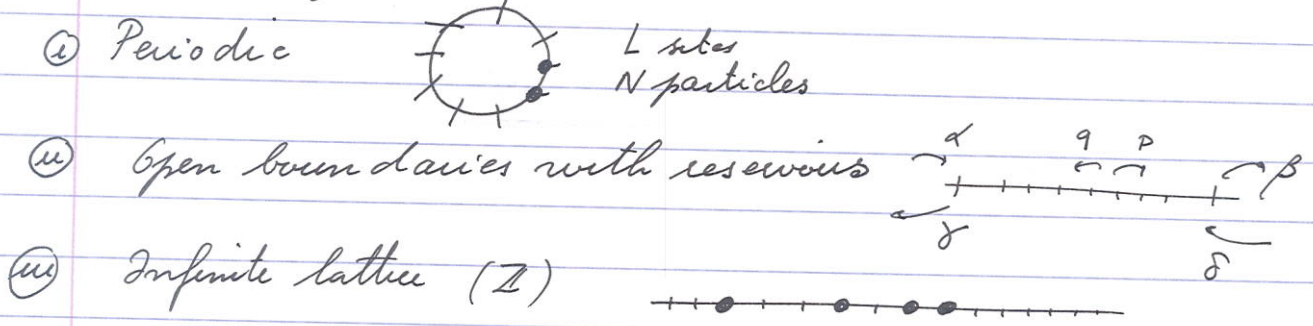 (i) Periodic L sites
N particles
(ii) Open boundaries with reservoirs α q p β
γ δ
(iii) Infinite lattice (ℤ)